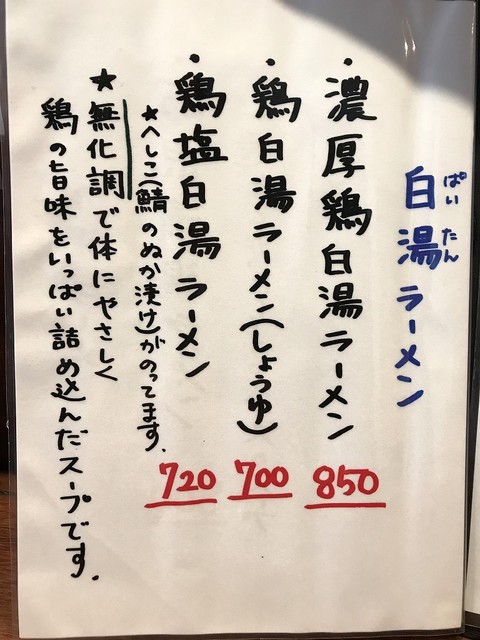 白湯ラーメン
ぱいたん
・濃厚鶏白湯ラーメン
850
・鶏白湯ラーメン(しょうゆ)
700
・鶏塩白湯ラーメン
720
★へしこ(鯖のぬか漬け)がのってます.
★無化調で体にやさしく
鶏の旨味をいっぱい詰め込んだスープです.